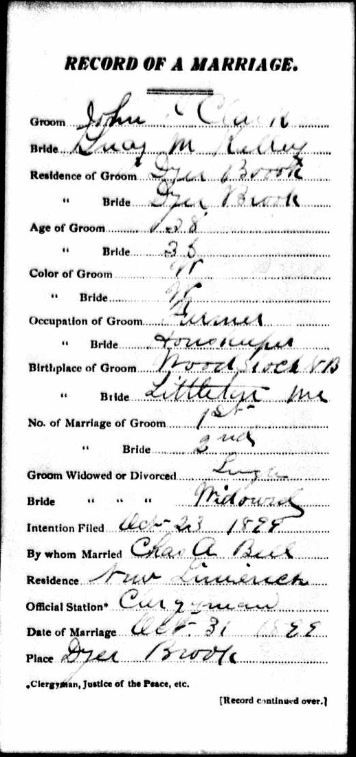 RECORD OF A MARRIAGE.
Groom John Clark
Bride Lucy M Kelley
Residence of Groom Dyer Brook
" Bride Dyer Brook
Age of Groom 28
" Bride 35
Color of Groom W
" Bride W
Occupation of Groom Farmer
" Bride Houskeeper
Birthplace of Groom Woodstock NB
" Bride Littleton Me
No. of Marriage of Groom 1st
" Bride 2nd
Groom Widowed or Divorced
Bride " " " Widowed
Intention Filed Oct 23 1899
By whom Married Chas A Bell
Residence New Limerick
Official Station* Clergyman
Date of Marriage Oct 31 1899
Place Dyer Brook
*Clergyman, Justice of the Peace, etc.
[Record continued over.]